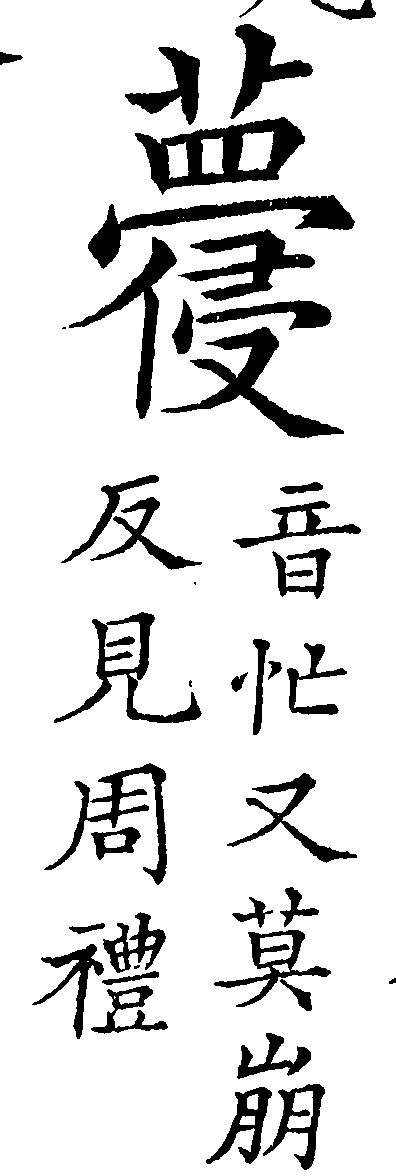 音忙又莫崩
反見周禮